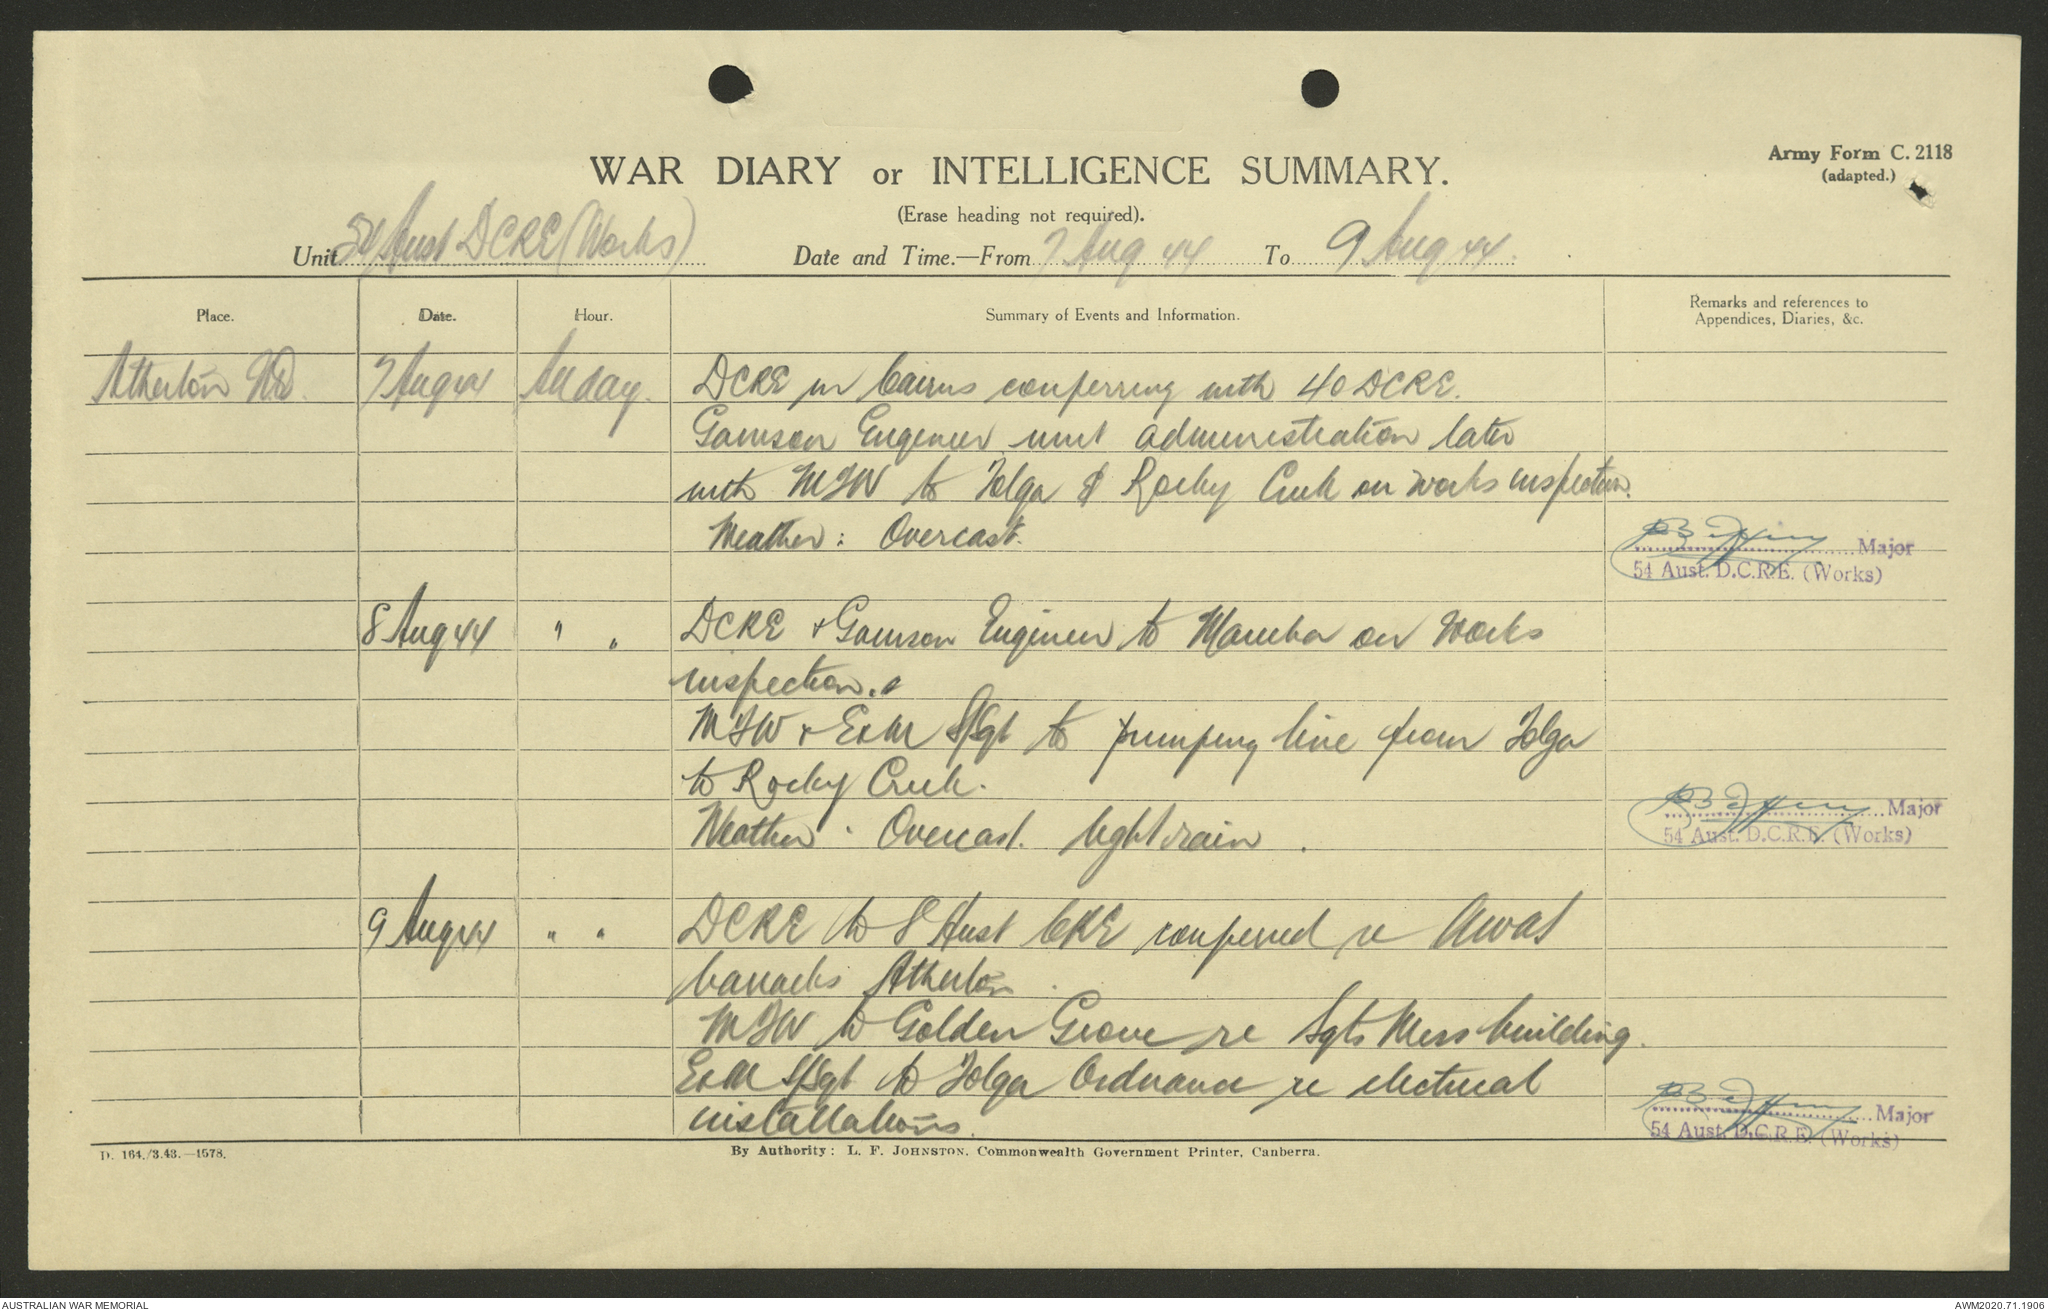 WAR DIARY or INTELLIGENCE SUMMARY.
Army Form C. 2118
(adapted.)
(Erase heading not required).
Unit 54 Aust DCRE (Works) Date and Time.—From 7 Aug 44 To 9 Aug 44.
Place. Date. Hour. Summary of Events and Information. Remarks and references to
Appendices, Diaries, &c.
Atherton 7 Aug 44 All day. DCRE in Cairns conferring with 40 DCRE.
Garrison Engineer unit administration later
with MFW to Tolga & Rocky Creek on works inspection.
Weather: Overcast.
Major
54 Aust. D.C.R.E. (Works)
8 Aug 44 " " DCRE + Garrison Engineer to Mareeba on Works
inspection.
MFW + E+M S/Sgt to pumping line from Tolga
to Rocky Creek.
Weather. Overcast. light rain.
Major
54 Aust. D.C.R.E. (Works)
9 Aug 44 " " DCRE to 8 Aust CRE conferred re AWAS
barracks Atherton.
MFW to Golden Grove re Sgts Mess building.
E+M S/Sgt to Tolga Ordnance re electrical
installations.
Major
54 Aust. D.C.R.E. (Works)
D. 164./3.43.—1578.
By Authority: L. F. JOHNSTON, Commonwealth Government Printer, Canberra.
AUSTRALIAN WAR MEMORIAL
AWM2020.71.1906